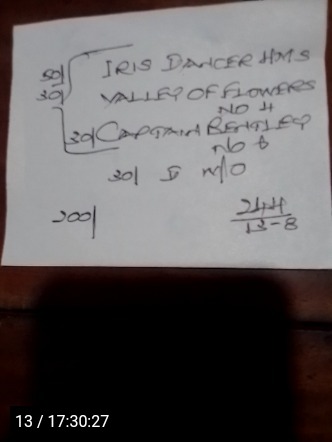 50/ IRIS DANCER HMS
30/ VALLEY OF FLOWERS
NO 4
30/ CAPTAIN BENTLEY
NO 6
30/ II W/O
200/
244
13-8
13 / 17:30:27